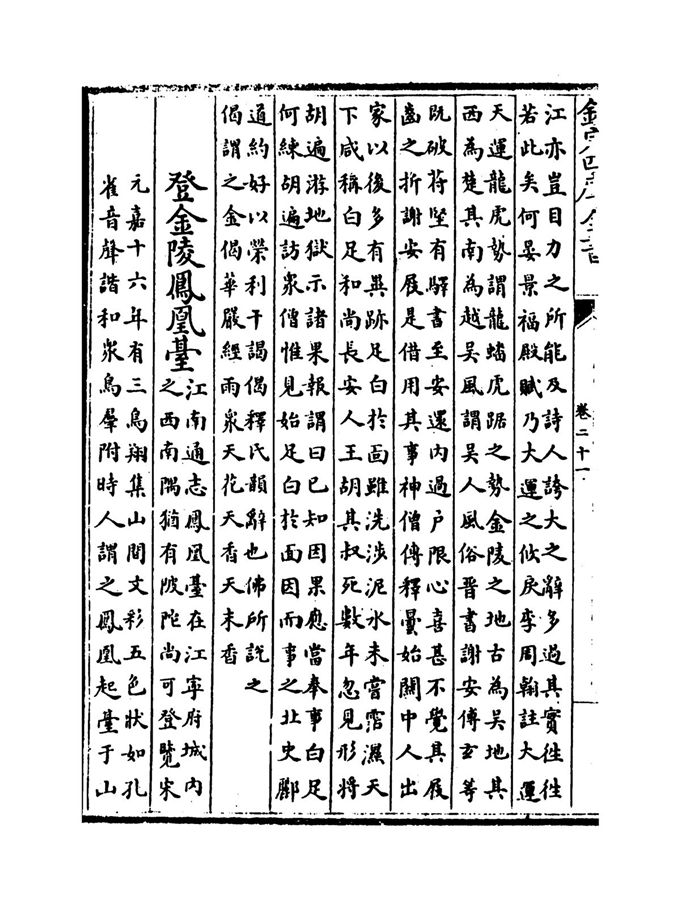 欽定四庫全書
卷二十一
江亦豈目力之所能及詩人誇大之辭多過其實往往
若此矣何晏景福殿賦乃大運之攸戾李周翰註大運
天運龍虎勢謂龍蟠虎踞之勢金陵之地古為吳地其
西為楚其南為越吳風謂吳人風俗晉書謝安傳玄等
既破苻堅有驛書至安還内過户限心喜甚不覺其屐
齒之折謝安屐是借用其事神僧傳釋曇始關中人出
家以後多有異跡足白於面雖洗涉泥水未嘗霑濕天
下咸稱白足和尚長安人王胡其叔死數年忽見形將
胡遍游地獄示諸果報謂曰已知因果應當奉事白足
何練胡遍訪衆僧惟見始足白於面因而事之北史酈
道約好以榮利干謁偈釋氏韻辭也佛所說之
偈謂之金偈華嚴經雨衆天花天香天末香
登金陵鳳凰臺
江南通志鳳凰臺在江寧府城内
之西南隅猶有陂陀尚可登覽宋
元嘉十六年有三鳥翔集山間文彩五色狀如孔
雀音聲諧和衆鳥羣附時人謂之鳳凰起臺于山